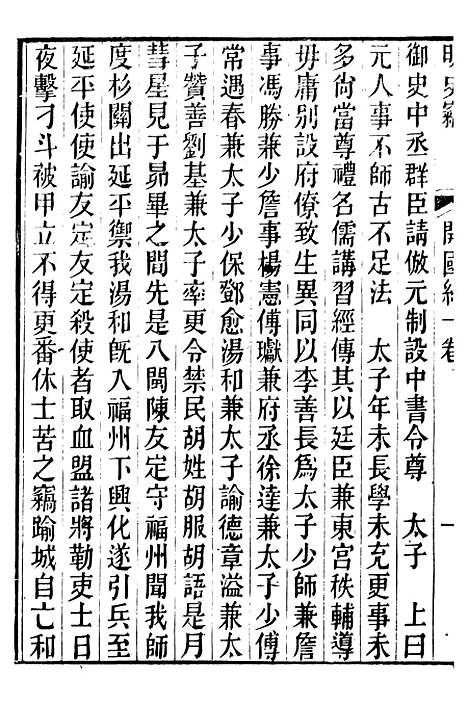 明史竊 開國紀一卷 一
御史中丞群臣請倣元制設中書令尊 太子 上曰
元人事不師古不足法 太子年未長學未充更事未
多尙當尊禮名儒講習經傳其以廷臣兼東宮秩輔導
毋庸別設府僚致生異同以李善長爲太子少師兼詹
事馮勝兼少詹事楊憲傅瓛兼府丞徐達兼太子少傅
常遇春兼太子少保鄧愈湯和兼太子諭德章溢兼太
子贊善劉基兼太子率更令禁民胡姓胡服胡語是月
彗星見于昴畢之間先是八閩陳友定守福州聞我師
度杉關出延平禦我湯和旣入福州下興化遂引兵至
延平使使諭友定友定殺使者取血盟諸將勒吏士日
夜擊刁斗被甲立不得更番休士苦之竊踰城自亡和